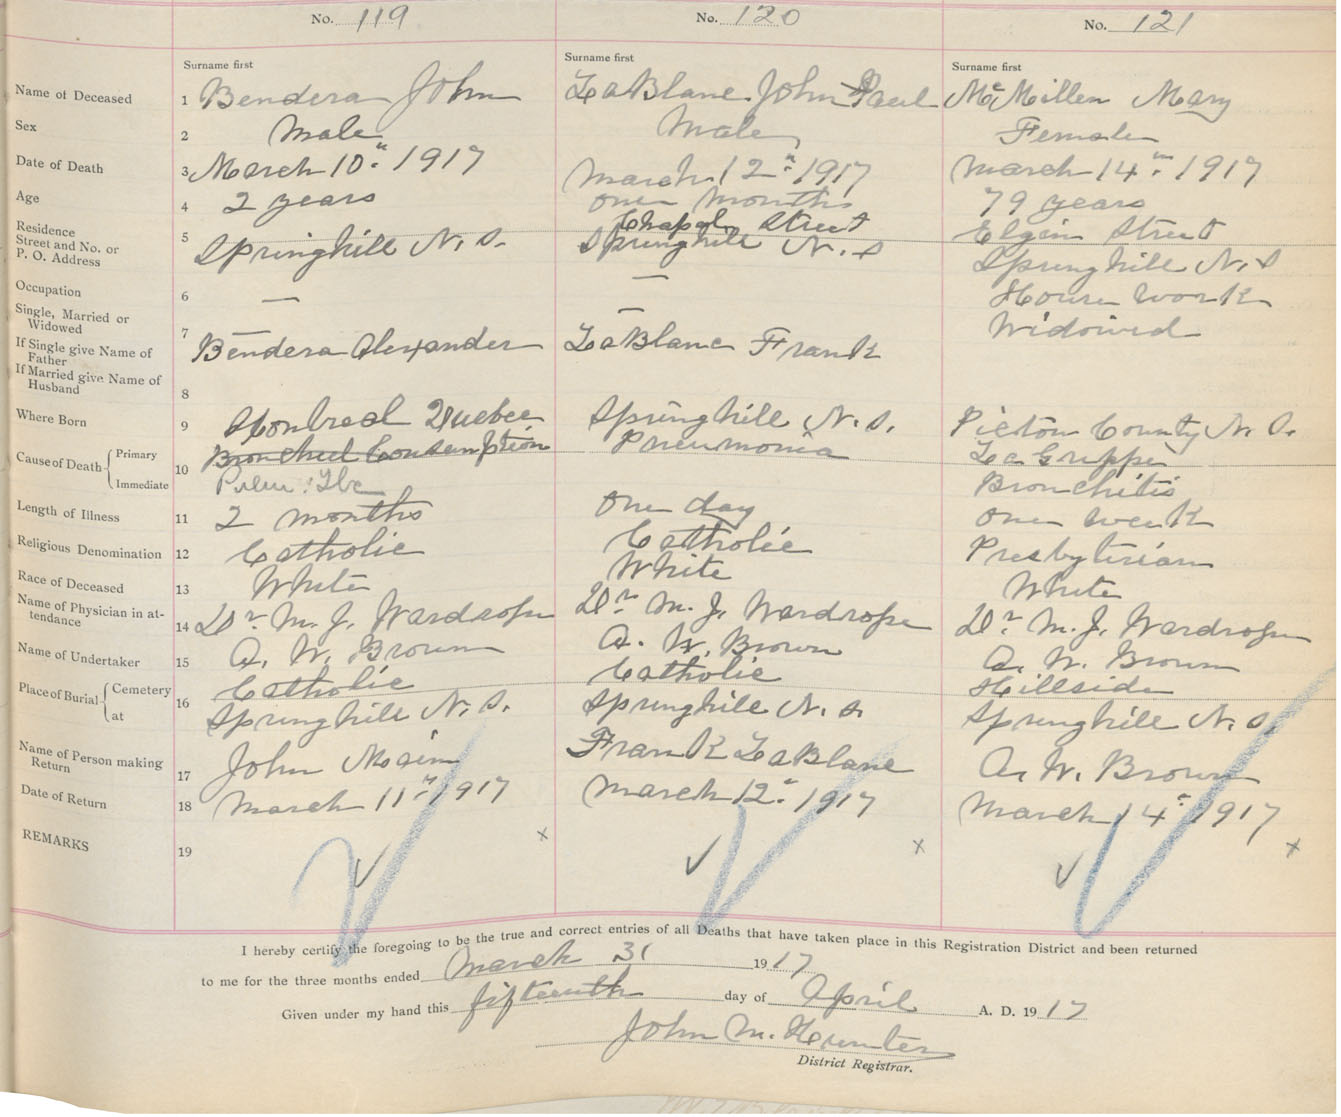 No. 119 No. 120 No. 121
Surname first Surname first Surname first
Name of Deceased 1 Bendera John LaBlanc John Paul McMillen Mary
Sex 2 Male Male Female
Date of Death 3 March 10" 1917 March 12" 1917 March 14" 1917
Age 4 2 years one months 79 years
Residence Chapel Street Elgin Street
Street and No. or 5 Springhill N. S. Springhill N. S Springhill N. S
P. O. Address
Occupation 6 — — House work
Single, Married or — — Widowed
Widowed 7
If Single give Name of Bendera Alexander LaBlanc Frank
Father
If Married give Name of 8
Husband
Where Born 9 Montreal Quebec Springhill N. S. Pictou County N. S.
Cause of Death Primary Bronchial Consumption Pneumonia La Grippe
10
Immediate Pulm: Tbc Bronchitis
Length of Illness 11 2 months one day one week
Religious Denomination 12 Catholic Catholic Presbyterian
Race of Deceased 13 White White White
Name of Physician in at- 14 Dr M. J. Wardrope Dr M. J. Wardrope Dr M. J. Wardrope
tendance
Name of Undertaker 15 A. W. Brown A. W. Brown A. W. Brown
Place of Burial Cemetery 16 Catholic Catholic Hillside
at Springhill N. S. Springhill N. S. Springhill N. S.
Name of Person making 17 John Frank LaBlanc A. W. Brown
Return
Date of Return 18 March 11" 1917 March 12" 1917 March 14" 1917
REMARKS 19 x x x
I hereby certify the foregoing to be the true and correct entries of all Deaths that have taken place in this Registration District and been returned
to me for the three months ended March 31 1917
Given under my hand this fifteenth day of April A. D. 1917
John M. Hunter
District Registrar.